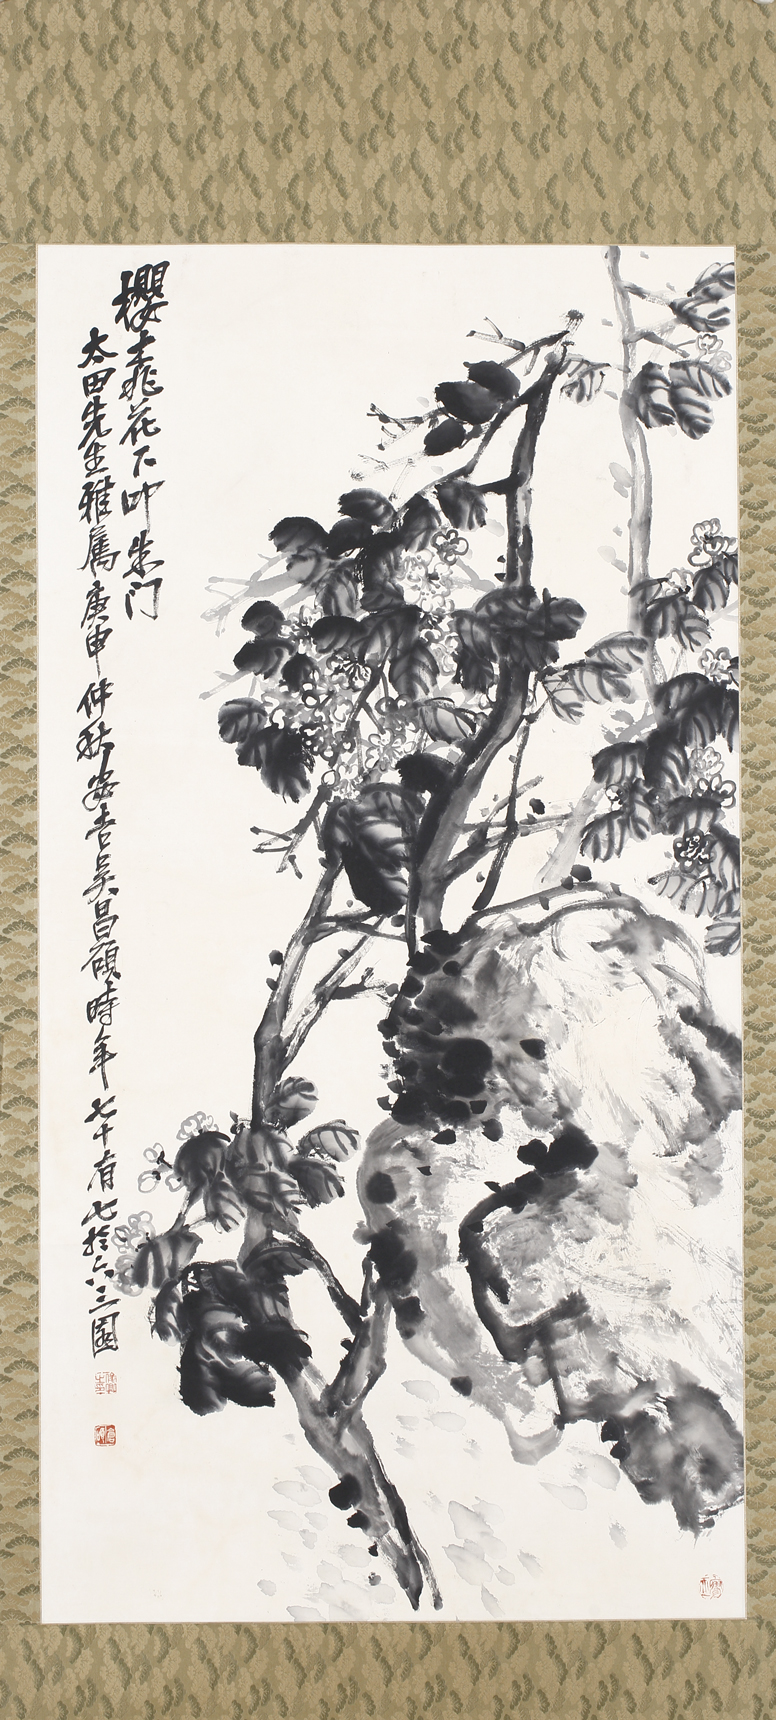 櫻桃花下叩朱門
太田先生雅屬庚申仲秋安吉吳昌碩時年七十有七於六三園